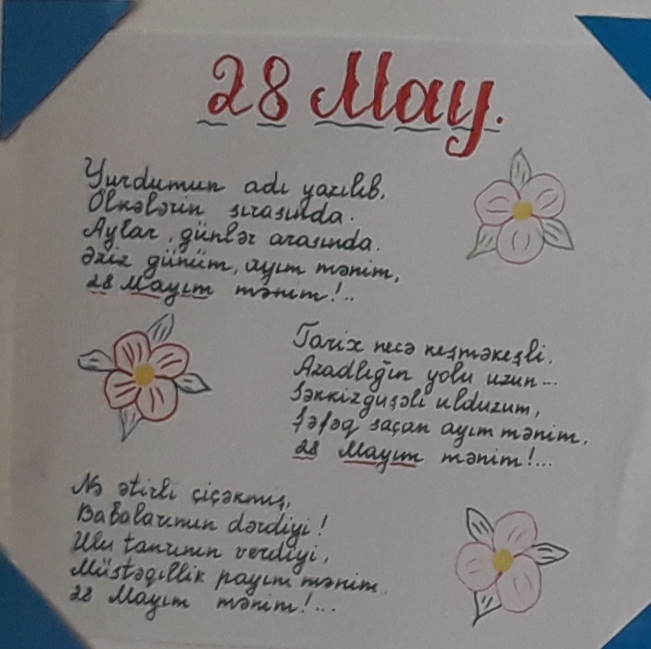 28 May.
Yurdumun adı yazılıb,
Ölkələrin sırasında.
Aylar, günlər arasında.
Əziz günüm, ayım mənim,
28 Mayım mənim!..
Tarix necə keşməkeşli,
Azadlığın yolu uzun...
Səkkizguşəli ulduzum,
Şəfəq saçan ayım mənim,
28 Mayım mənim!...
Nə ətirli çiçəkmiş,
Babalarımın dərdiyi!
Ulu tanrının verdiyi,
Müstəqillik payım mənim.
28 Mayım mənim!...